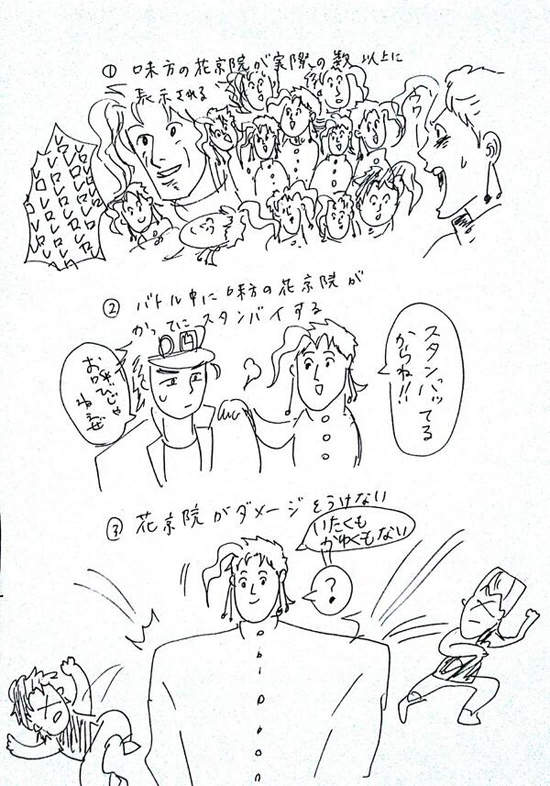 ① 味方の花京院が実際の数以上に
表示される
レロレロレロレロ
② バトル中に味方の花京院が
かってにスタンバイする
スタンバッてる
からね!!
お呼びじゃ
ねぇぜ
③ 花京院がダメージをうけない
いたくも
かゆくもない
?